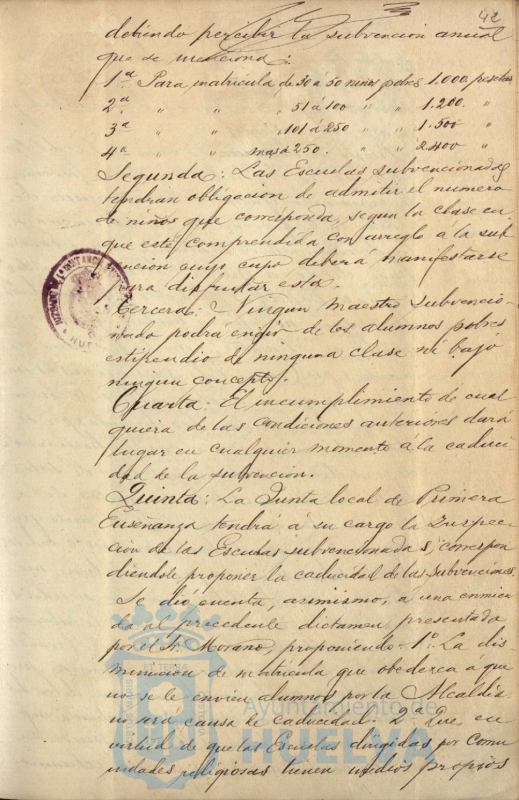 42
debiendo percibir la subvencion anual
que se menciona:
1ª Para matricula de 30 a 50 niños pobres 1.000. pesetas
2ª " " " 51 á 100 " " 1.200. "
3ª " " " 101 á 250 " " 1.500 "
4ª " " mas á 250. " " 2.400 "
Segunda: Las Escuelas subvencionadas
tendran obligacion de admitir el numero
de niños que corresponda, segun la clase en
que esté comprendida con arreglo a la sub
vencion cuyo cupo deberá manifestarse
para disfrutar esta.
Tercera: Ningun maestro subvencio-
nado podrá exigir de los alumnos pobres
estipendio de ninguna clase ni bajo
ningun concepto.
Cuarta. El incumplimiento de cual
quiera de las condiciones anteriores dará
lugar en cualquier momento á la caduci
dad de la subvencion.
Quinta: La Junta local de Primera
Enseñanza tendrá á su cargo la Inspec-
cion de las Escuelas subvencionadas, correspon
diendole proponer la caducidad de las subvenciones.
Se dió cuenta, asimismo, a una enmien
da al precedente dictamen presentada
por el Sr. Morano, proponiendo - 1º. La dis-
minucion de matricula que obedezca a que
no se le envien alumnos por la Alcaldia
no será causa de caducidad. 2º Que, en
virtud de que las Escuelas dirigidas por Comu
nidades religiosas tienen medios propios
Ayuntamiento de
HUELVA